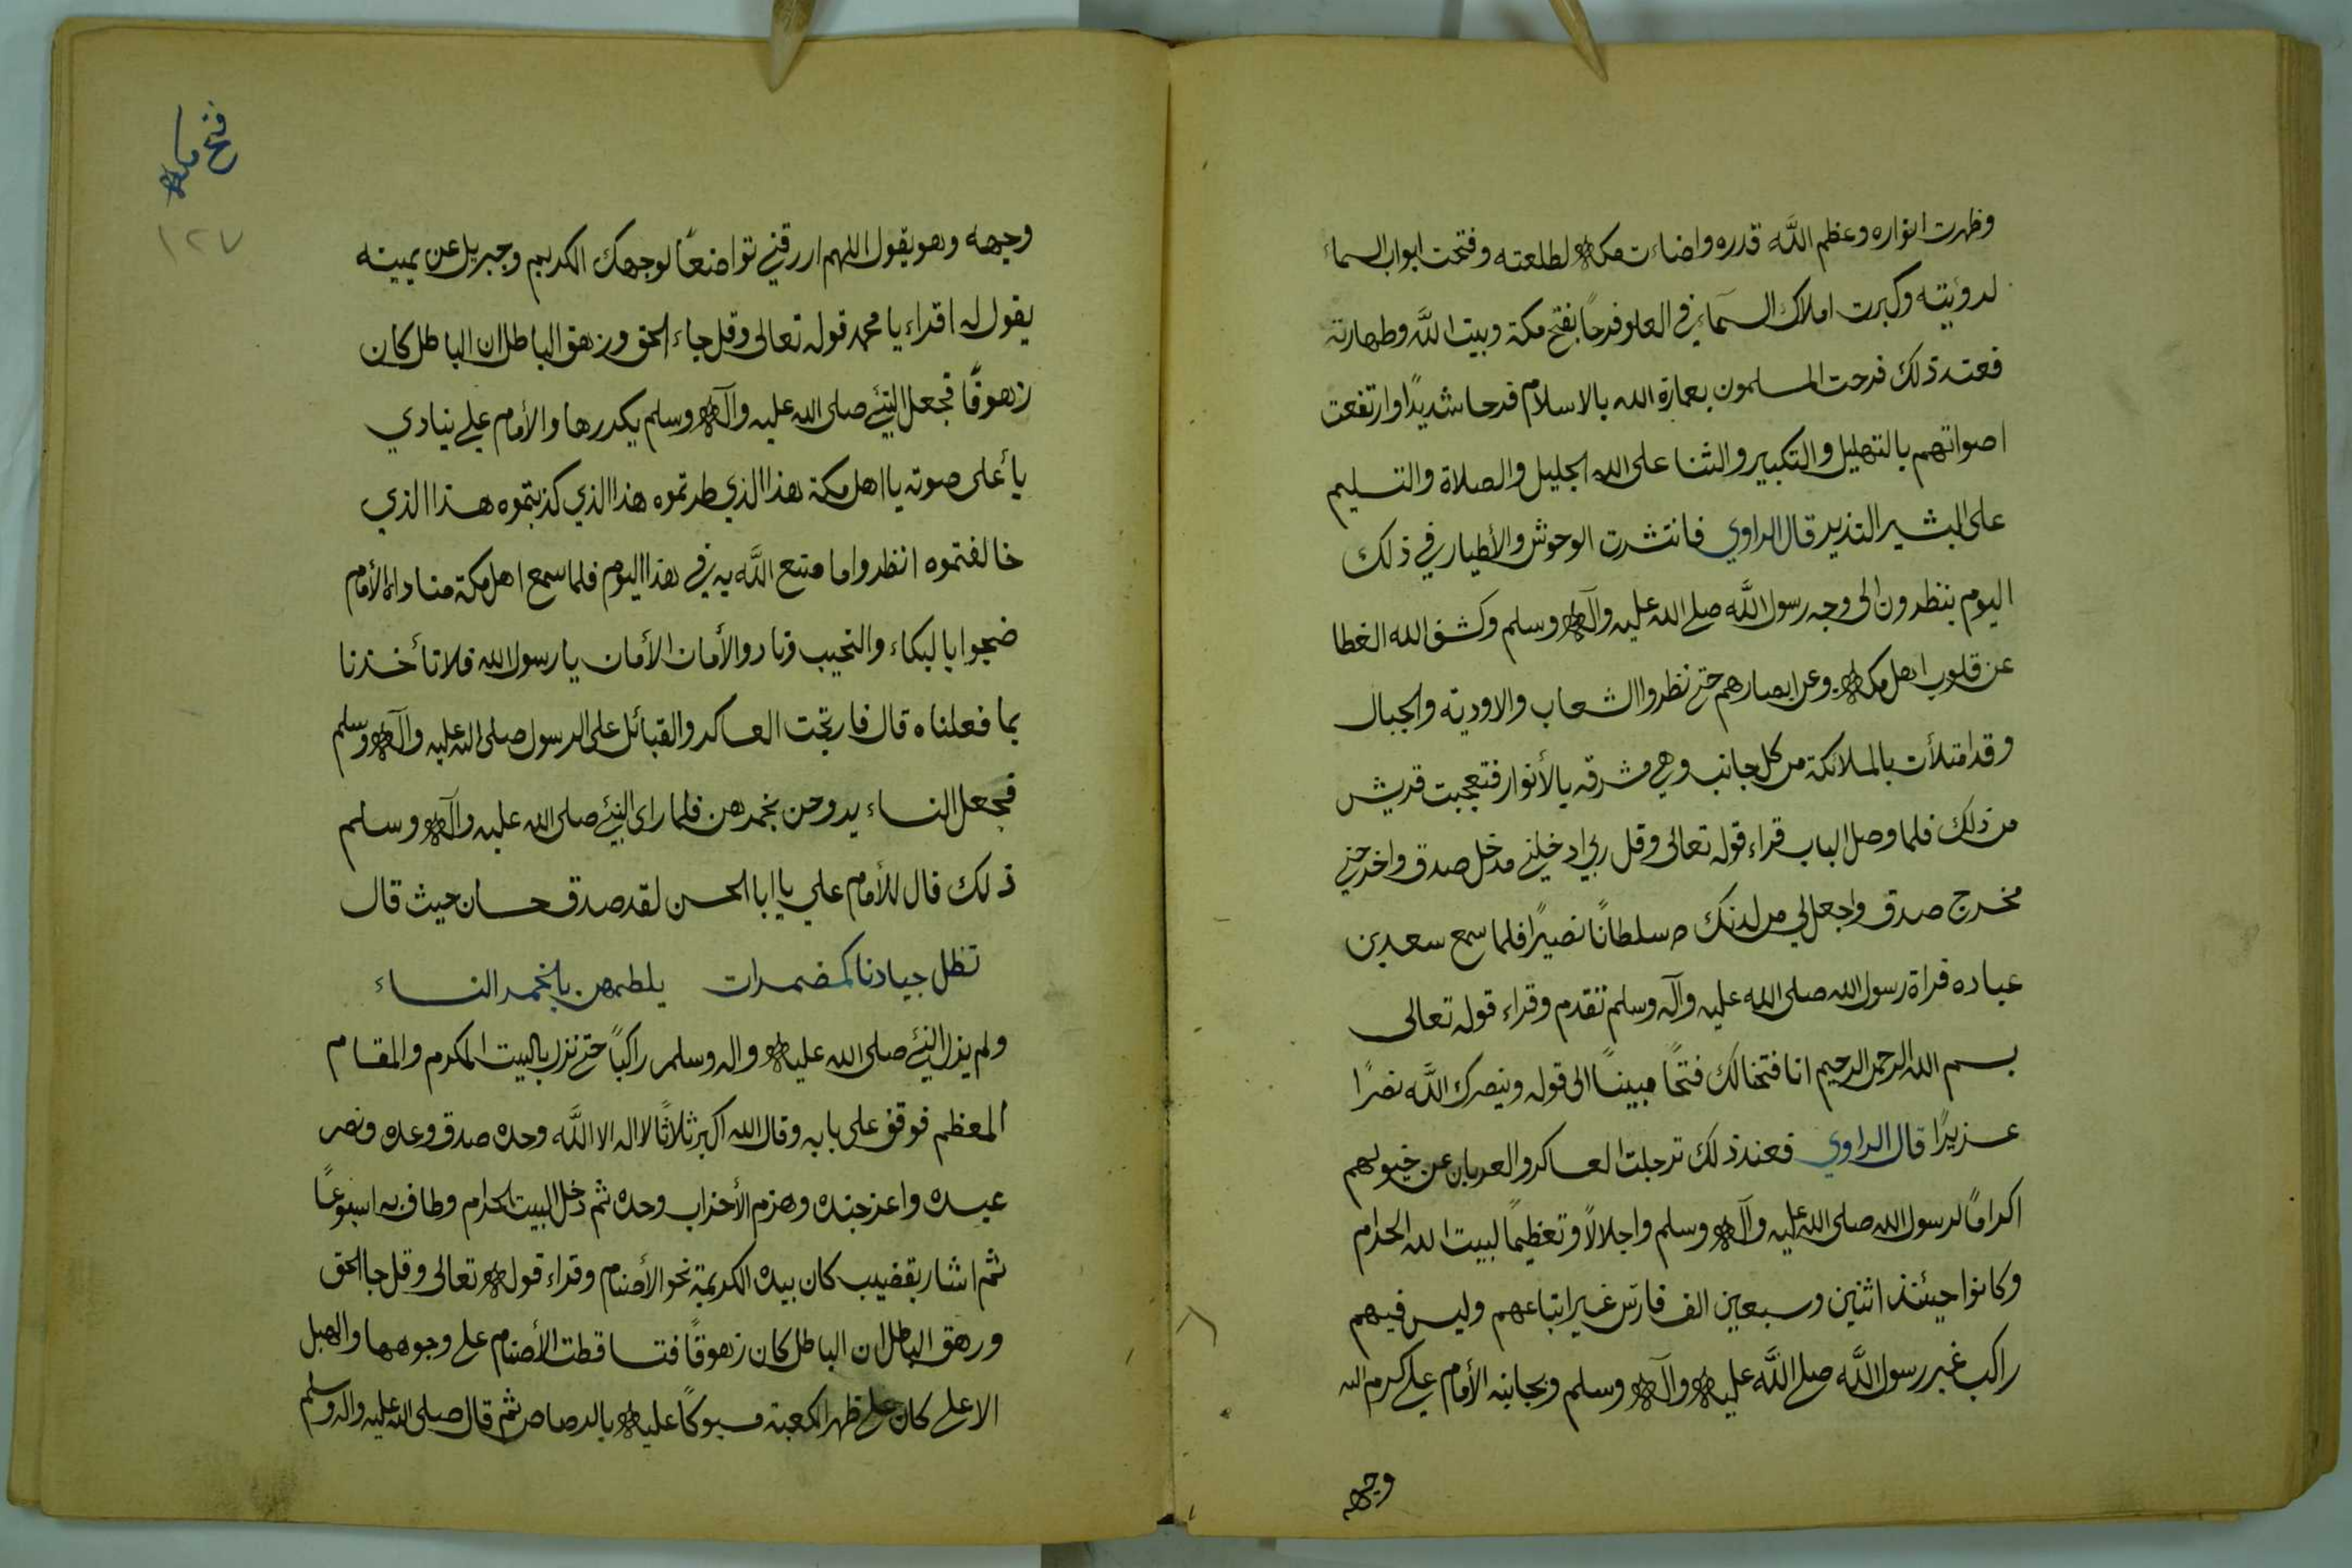 وظهرت انواره وعظم اللّٰه قدره واضاءت مكه لطلعته وفتحت ابواب السماء
لرؤيته وكبرت املاك السماء في العلو فرحًا بفتح مكة وبيت اللّٰه وطهارته
فعند ذلك فرحت المسلمون بعمارة الله بالاسلام فرحا شديدًا وارتفعت
اصواتهم بالتهليل والتكبير والثنا على الله الجليل والصلاة والتسليم
على البشير النذير قال الراوي فانتشرت الوحوش والأطيار في ذلك
اليوم ينظرون الى وجه رسول اللّٰه صلى الله عليه وآله وسلم وكشف الله الغطا
عن قلوب اهل مكه وعن ابصارهم حتى نظروا الشعاب والاودية والجبال
وقد امتلأت بالملائكة من كل جانب وهي مشرقه بالأنوار فتعجبت قريش
من ذلك فلما وصل الباب قراء قوله تعالى وقل ربي ادخلني مدخل صدق واخرجني
مخرج صدق واجعل لي من لدنك سلطانًا نصيرًا فلما سمع سعد بن
عباده قراة رسول الله صلى الله عليه وآله وسلم تقدم وقراء قوله تعالى
بسم الله الرحمن الرحيم انا فتحنا لك فتحًا مبينًا الى قوله وينصرك اللّٰه نصرًا
عزيزًا قال الراوي فعند ذلك ترجلت العساكر والعربان عن خيولهم
اكرامًا لرسول الله صلى الله عليه وآله وسلم واجلالًا وتعظيمًا لبيت الله الحرام
وكانوا حيئنذ اثنين وسبعين الف فارس غير اتباعهم وليس فيهم
راكب غير رسول اللّٰه صلى اللّٰه عليه وآله وسلم وبجانبه الأمام علي كرم الله
وجهه
فتح مكه
١٢٧
وجهه وهو يقول اللهم اررقني تواضعًا لوجهك الكريم وجبريل عن يمينه
يقول له اقراء يا محمد قوله تعالى وقل جاء الحق وزهق الباطل ان الباطل كان
زهوقًا فجعل النبي صلى الله عليه وآله وسلم يكررها والأمام علي ينادي
بأعلى صوته يا اهل مكة هذا الذي طردتموه هذا الذي كذبتموه هذا الذي
خالفتموه انظروا ما صنع اللّٰه به في هذا اليوم فلما سمع اهل مكة مناداة الأمام
ضجوا بالبكاء والنحيب ونادوا الأمان الأمان يا رسول الله فلا تأخذنا
بما فعلناه قال فارتجت العساكر والقبائل على الرسول صلى الله عليه وآله وسلم
فجعل النساء يروحن بخمرهن فلما راى النبي صلى الله عليه وآله وسلم
ذلك قال للأمام علي يا ابا الحسن لقد صدق حسان حيث قال
تظل جيادنا كمضمرات يلطمهن بالخمر النساء
ولم يزل النبي صلى الله عليه واله وسلم راكبًا حتى نزل بالبيت المكرم والمقام
المعظم فوقف على بابه وقال الله اكبر ثلاثًا لا اله الا اللّٰه وحده صدق وعده ونصر
عبده واعز جنده وهزم الأحزاب وحده ثم دخل البيت الحرام وطاف به اسبوعًا
ثم اشار بقضيب كان بيده الكريمة نحو الأصنام وقراء قوله تعالى وقل جا الحق
ورهق الباطل ان الباطل كان زهوقًا فتساقطت الأصنام على وجوهها والهبل
الاعلى كان على ظهر الكعبة مسبوكًا عليه بالرصاص ثم قال صلى الله عليه واله وسلم